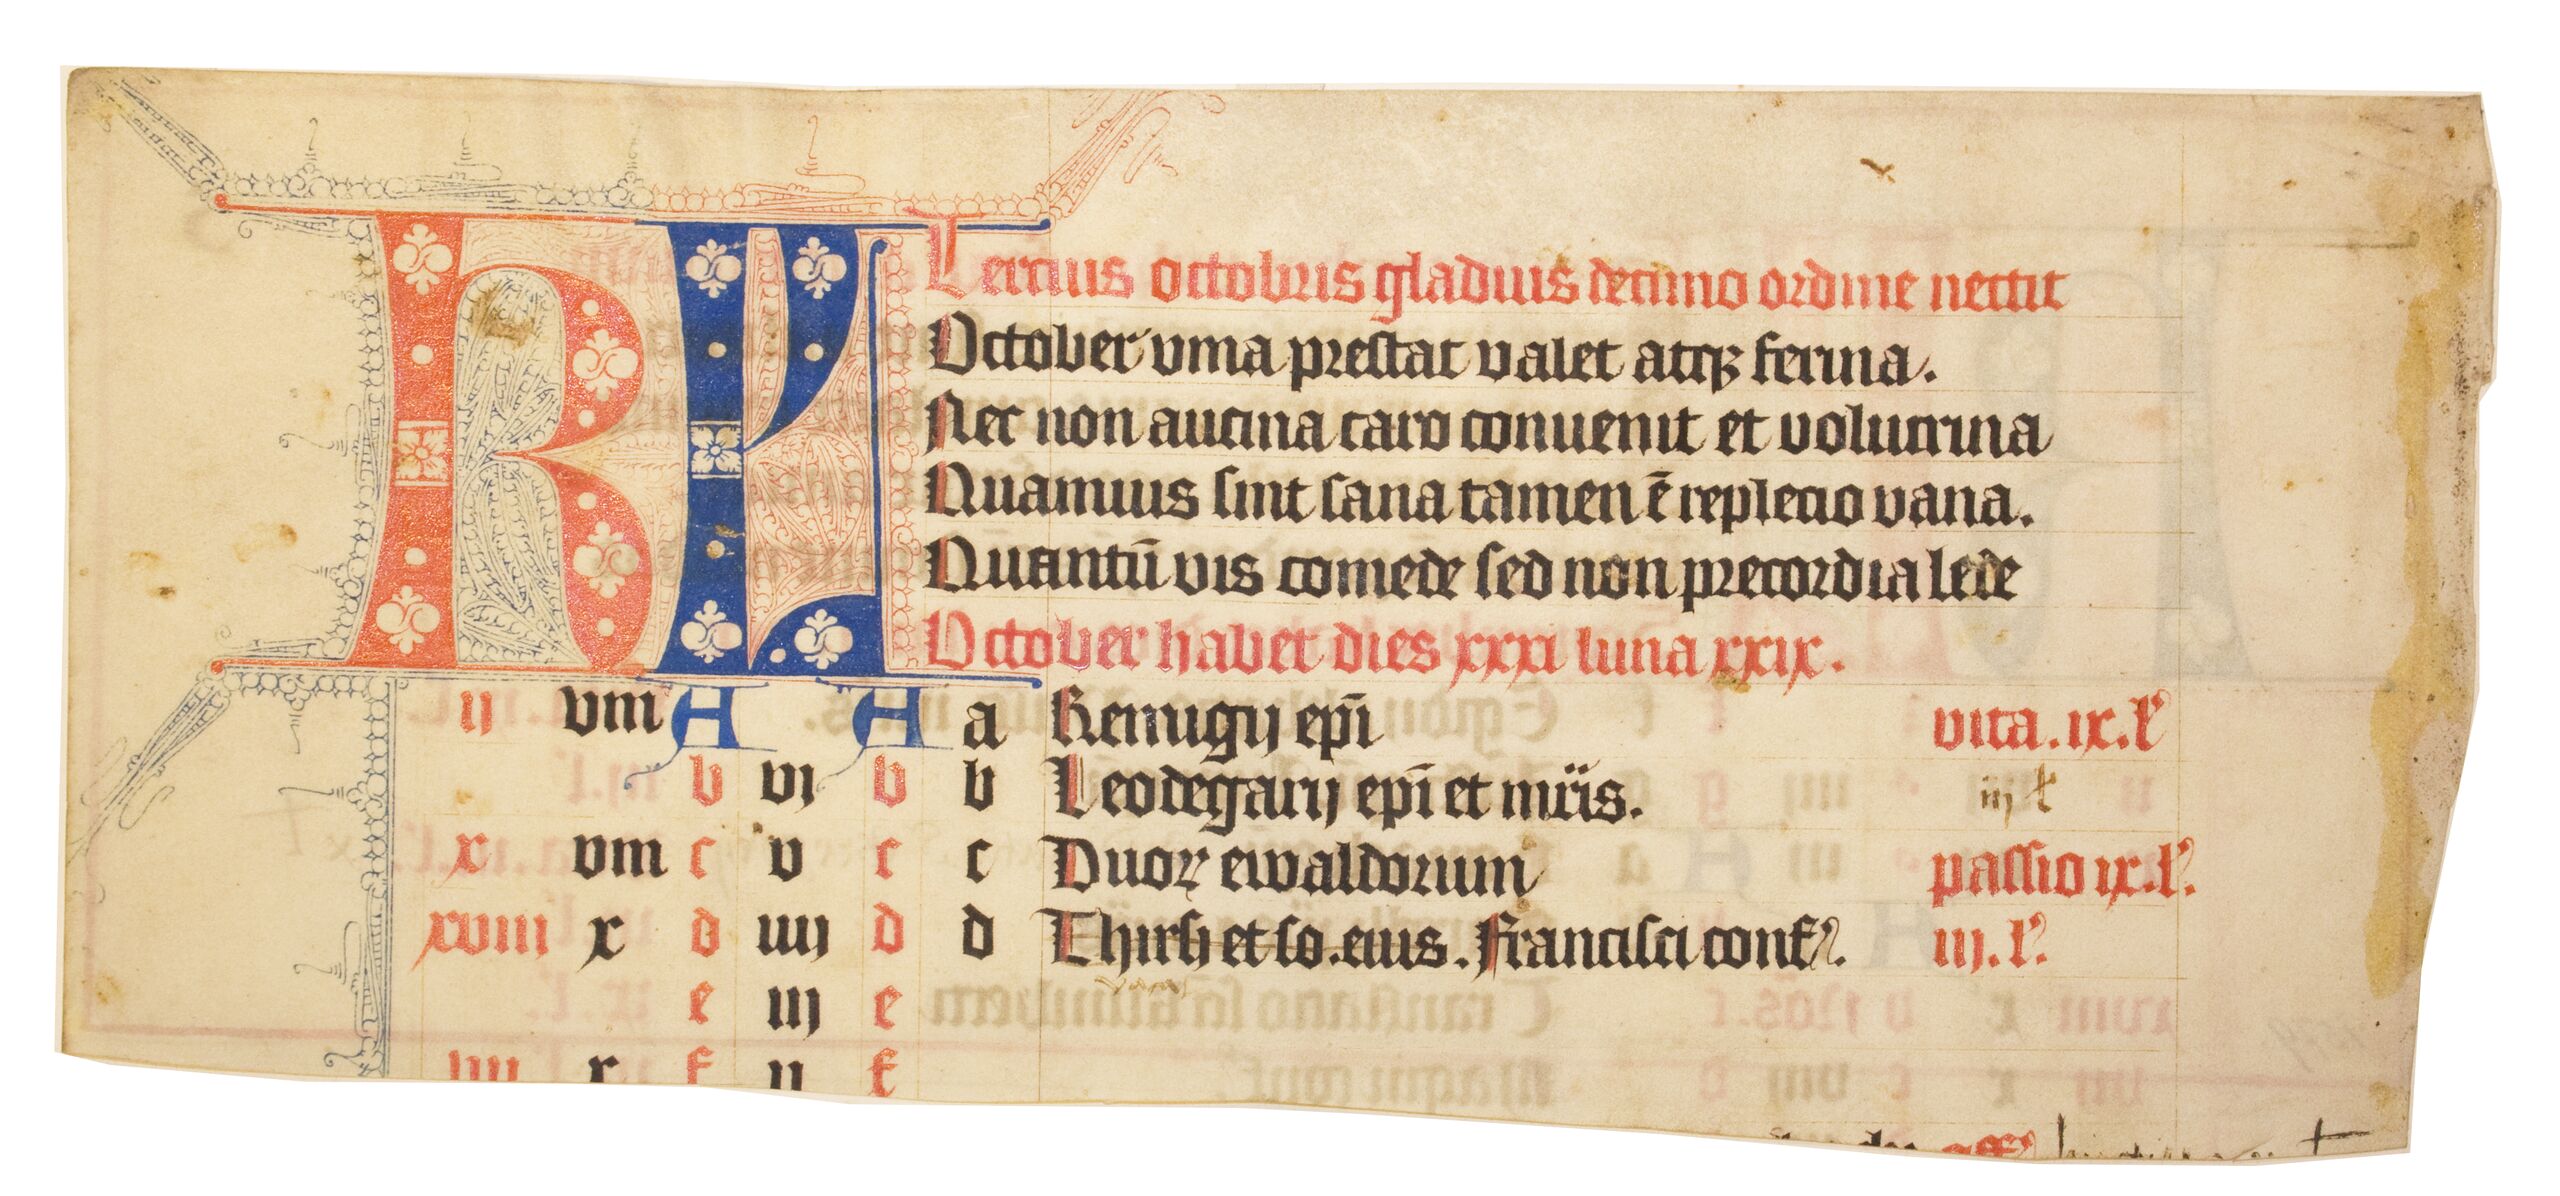 KL Tercius octobris gladius decimo ordine nectit
October vina prestat valet atqꝫ ferina.
Nec non aucina caro conuenit et volucrina
Quamuis sint sana tamen ē replecio vana.
Quantū vis comede sed non precordia lede
October habet dies xxxi luna xxix.
ij viii A A a Remigij epī vita. ix. l'
b vi b b Leodegarij epī et mr̄is. iij l
x viii c v c c Duoꝝ ewaldorum passio ix. l'.
xviii x d iiij d d Thirsi et so. eius. Francisci conf'. iij. l'.
e iij e
iiii x f ij f